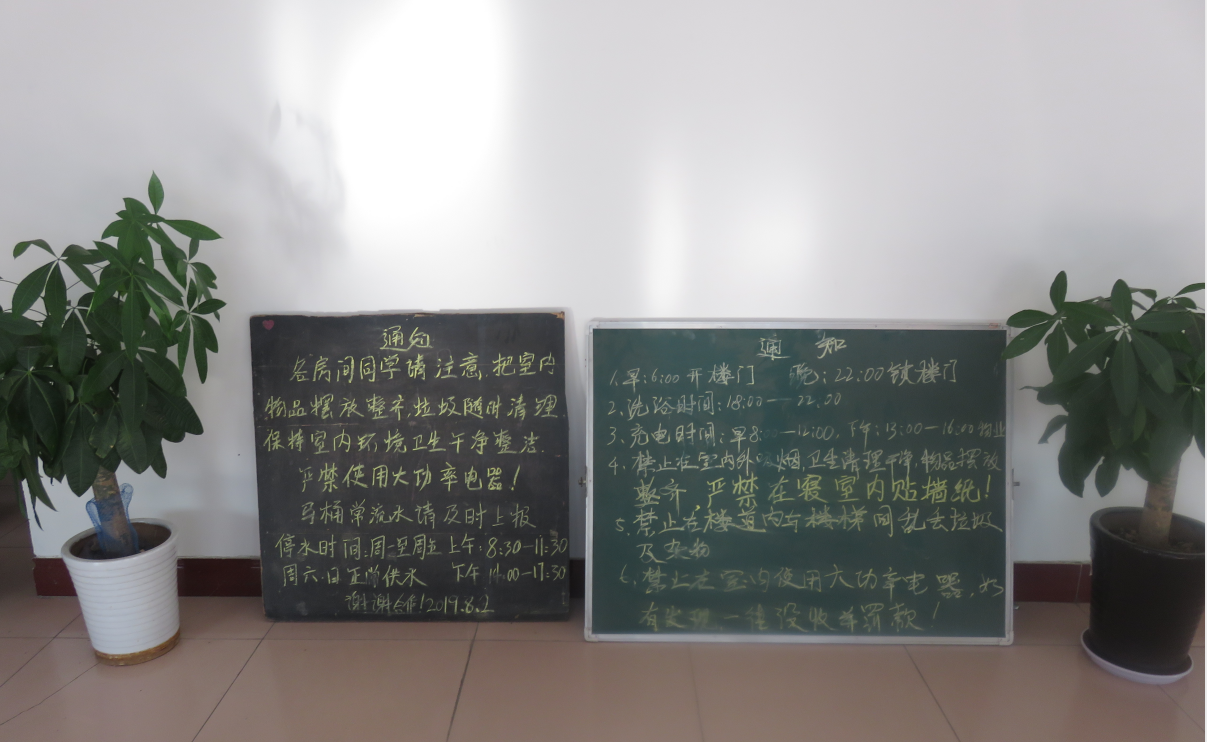 通知
各房间同学请注意,把室内
物品摆放整齐,垃圾随时清理,
保持室内环境卫生干净整洁.
严禁使用大功率电器!
马桶常流水请及时上报
停水时间:周一至周五 上午:8:30—11:30
周六.日正常供水 下午 14:00—17:30
谢谢合作!2019.8.2
通 知
1.早:6:00开楼门 晚:22:00锁楼门
2.洗浴时间:18:00—22:00
3.充电时间:早8:00—12:00,下午:13:00—16:00
4.禁止在室内外吸烟,卫生清理干净,物品摆放
整齐,严禁在寝室内贴墙纸!
5.禁止在楼道内与楼梯间乱丢垃圾
及杂物
6.禁止在室内使用大功率电器,如
有发现一律没收并罚款!